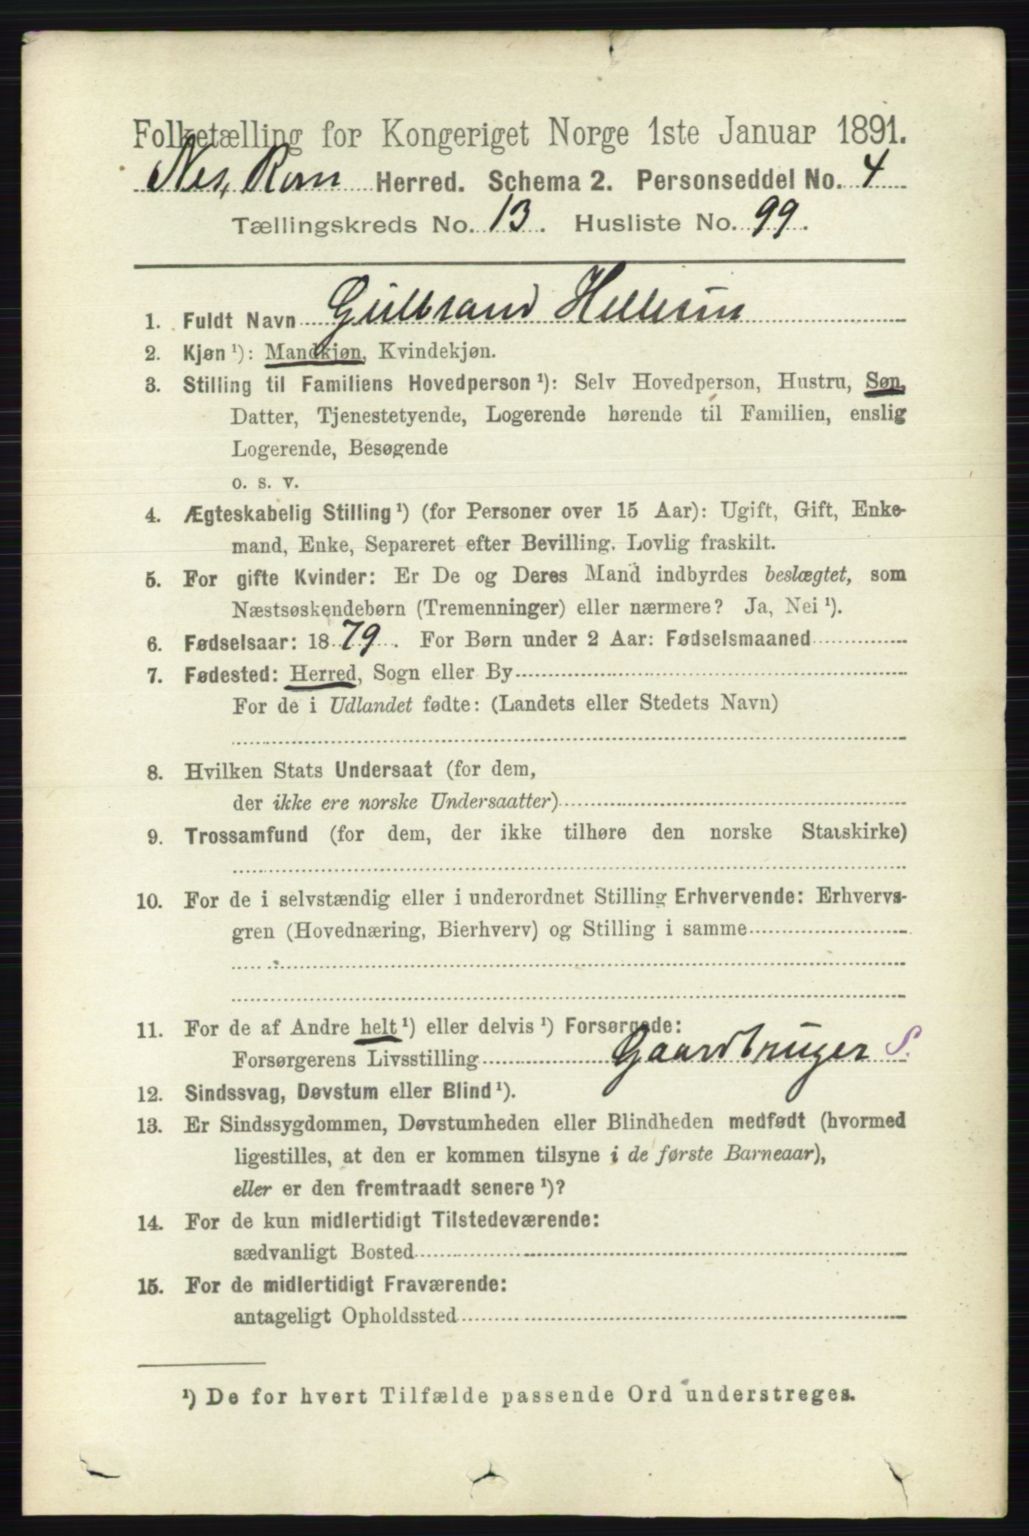 Folketælling for Kongeriget Norge 1ste Januar 1891.
Nes, Rom Herred. Schema 2. Personseddel No. 4
Tællingskreds No. 13. Husliste No. 99.
1. Fuldt Navn Gulbrand Hellerud
2. Kjøn ¹): Mandkjøn, Kvindekjøn.
3. Stilling til Familiens Hovedperson ¹): Selv Hovedperson, Hustru, Søn,
Datter, Tjenestetyende, Logerende hørende til Familien, enslig
Logerende, Besøgende
o. s. v.
4. Ægteskabelig Stilling ¹) (for Personer over 15 Aar): Ugift, Gift, Enke-
mand, Enke, Separeret efter Bevilling. Lovlig fraskilt.
5. For gifte Kvinder: Er De og Deres Mand indbyrdes beslægtet, som
Næstsøskendebørn (Tremenninger) eller nærmere? Ja, Nei ¹).
6. Fødselsaar: 1879. For Børn under 2 Aar: Fødselsmaaned
7. Fødested: Herred, Sogn eller By
For de i Udlandet fødte: (Landets eller Stedets Navn)
8. Hvilken Stats Undersaat (for dem,
der ikke ere norske Undersaatter)
9. Trossamfund (for dem, der ikke tilhøre den norske Statskirke)
10. For de i selvstændig eller i underordnet Stilling Erhvervende: Erhvervs-
gren (Hovednæring, Bierhverv) og Stilling i samme
11. For de af Andre helt ¹) eller delvis ¹) Forsørgede:
Forsørgerens Livsstilling Gaardbruger S.
12. Sindssvag, Døvstum eller Blind ¹).
13. Er Sindssygdommen, Døvstumheden eller Blindheden medfødt (hvormed
ligestilles, at den er kommen tilsyne i de første Barneaar),
eller er den fremtraadt senere ¹)?
14. For de kun midlertidigt Tilstedeværende:
sædvanligt Bosted
15. For de midlertidigt Fraværende:
antageligt Opholdssted
¹) De for hvert Tilfælde passende Ord understreges.